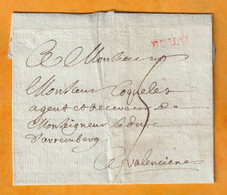 A Monsieur
Monsieur Coqueles
agent et receveur de
Monseigneur le duc
d'avremberg
a valencienes